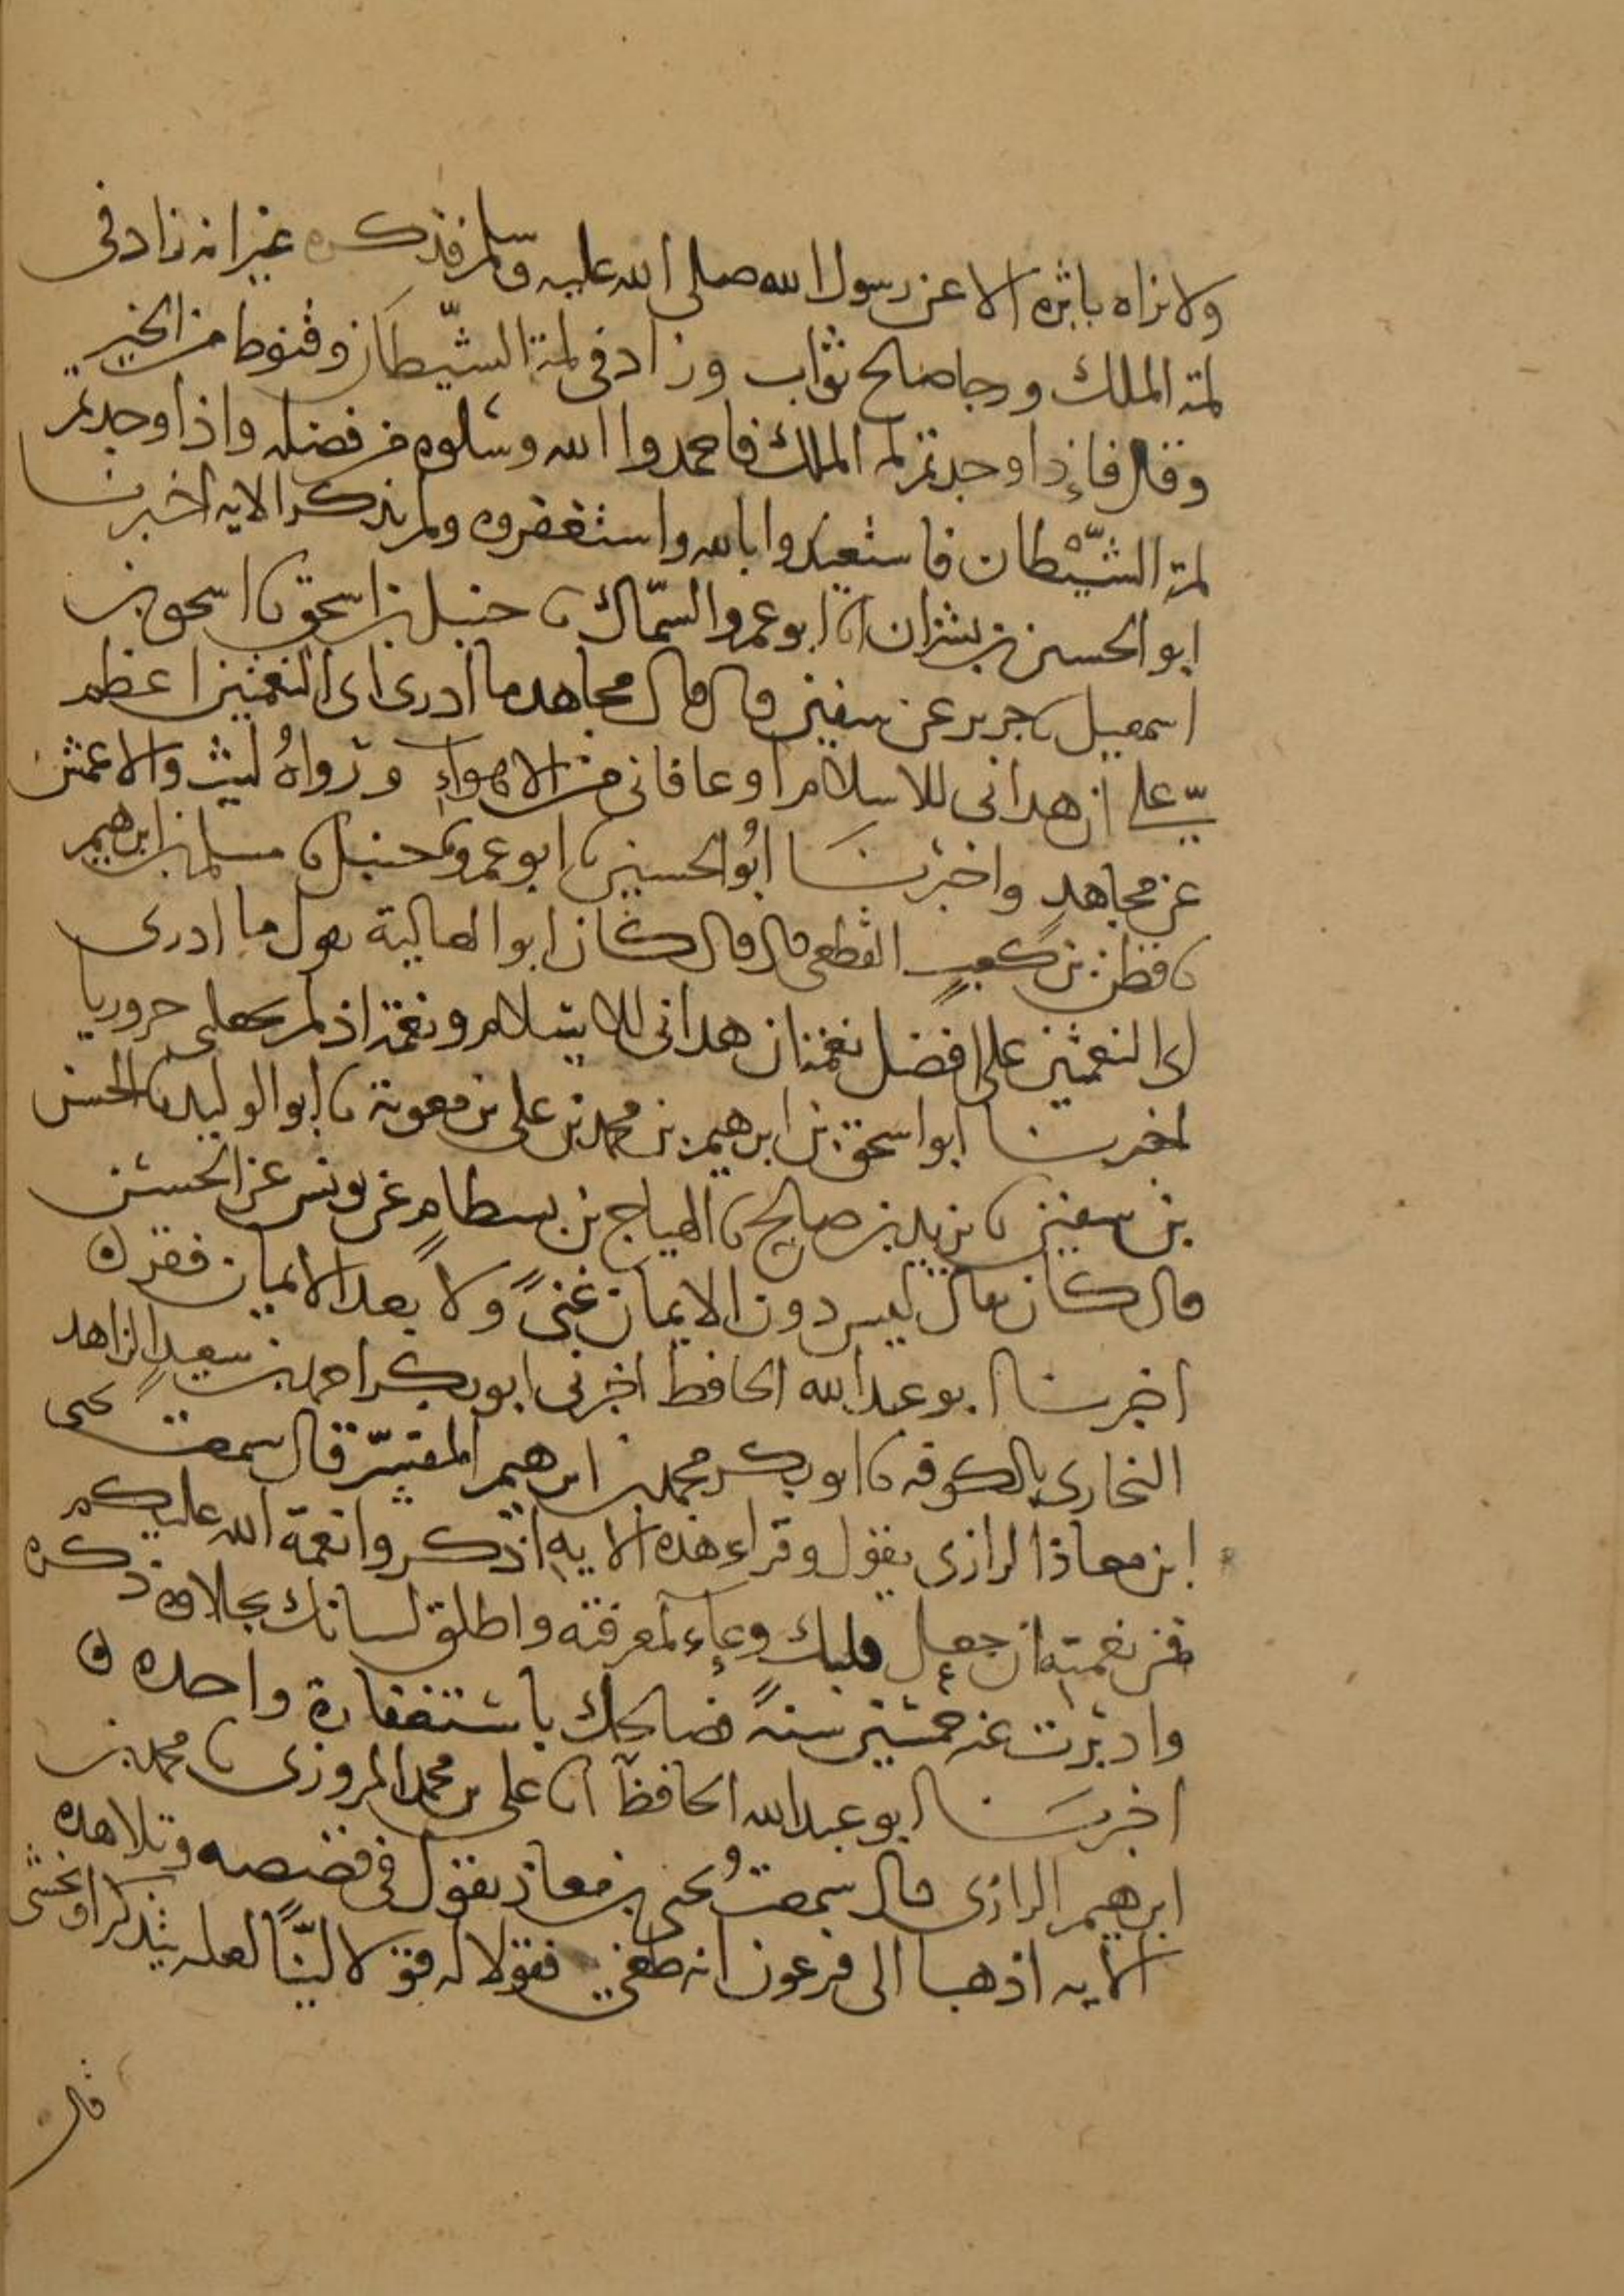 ولا نراه ياثره الا عن رسول الله صلى الله عليه وسلم فذكره غير انه زاد في
لمة الملك ورجا صالح ثواب وزاد في لمة الشيطان وقنوط من الخير
وقال فإذا وجدتم لمة الملك فاحمدوا الله وسلوه من فضله واذا وجدتم
لمة الشيطان فاستعيذوا بالله واستغفروه ولم يذكر الايه اخبرنا
ابو الحسين بن بشران انا ابو عمرو السمّاك نا حنبل بن اسحق نا اسحق بن
اسمعيل نا جرير عن سفين قال قال مجاهد ما ادري اي النعمتين اعظم
عليّ ان هداني للاسلام او عافاني من الاهواء ورواهُ ليث والاعمش
عن مجاهدٍ واخبرنا ابُو الحسين نا ابو عمرو نا حنبل نا مسلم بن ابرهيم
نا قطن بن كعبٍ القطعي قال قال كان ابو العالية يقول ما ادري
اي النعمتين علي افضل نعمة ان هداني للاسلام ونعمة اذ لم يجعلني حروريا
اخبرنا ابو اسحق بن ابرهيم بن محمد بن علي بن معوية نا ابو الوليد نا الحسن
بن سفين نا يزيد بن صالح نا الهياج بن بسطامٍ عن يونس عن الحسن
قال كان يقال ليس دون الايمان غنىً ولا بعد الايمان فقر ه
اخبرنا ابو عبد الله الحافظ اخبرني ابو بكر احمد بن سعيدٍ الزاهد
البخاري بالكوفه نا ابو بكر محمد بن ابرهيم المفسّر قال سمعت يحيى
ابن معاذ الرازي يقول وقراء هذه الايه اذكروا نعمة الله عليكم
فمن نعمته ان جعل قلبك وعاء لمعرفته واطلق لسانك بحلاوة ذكره
وادبرت عنه خمسين سنةً فصالحك باستغفارة واحده ه
اخبرنا ابو عبد الله الحافظ انا علي بن محمد المروزي نا محمد بن
ابرهيم الرازي قال سمعتُ يحيى بن معاذ يقول في قصصه وتلا هذه
الايه اذهبا الى فرعون انه طغى فقولا له قولا ليّناً لعله يتذكر او يخشى
قال